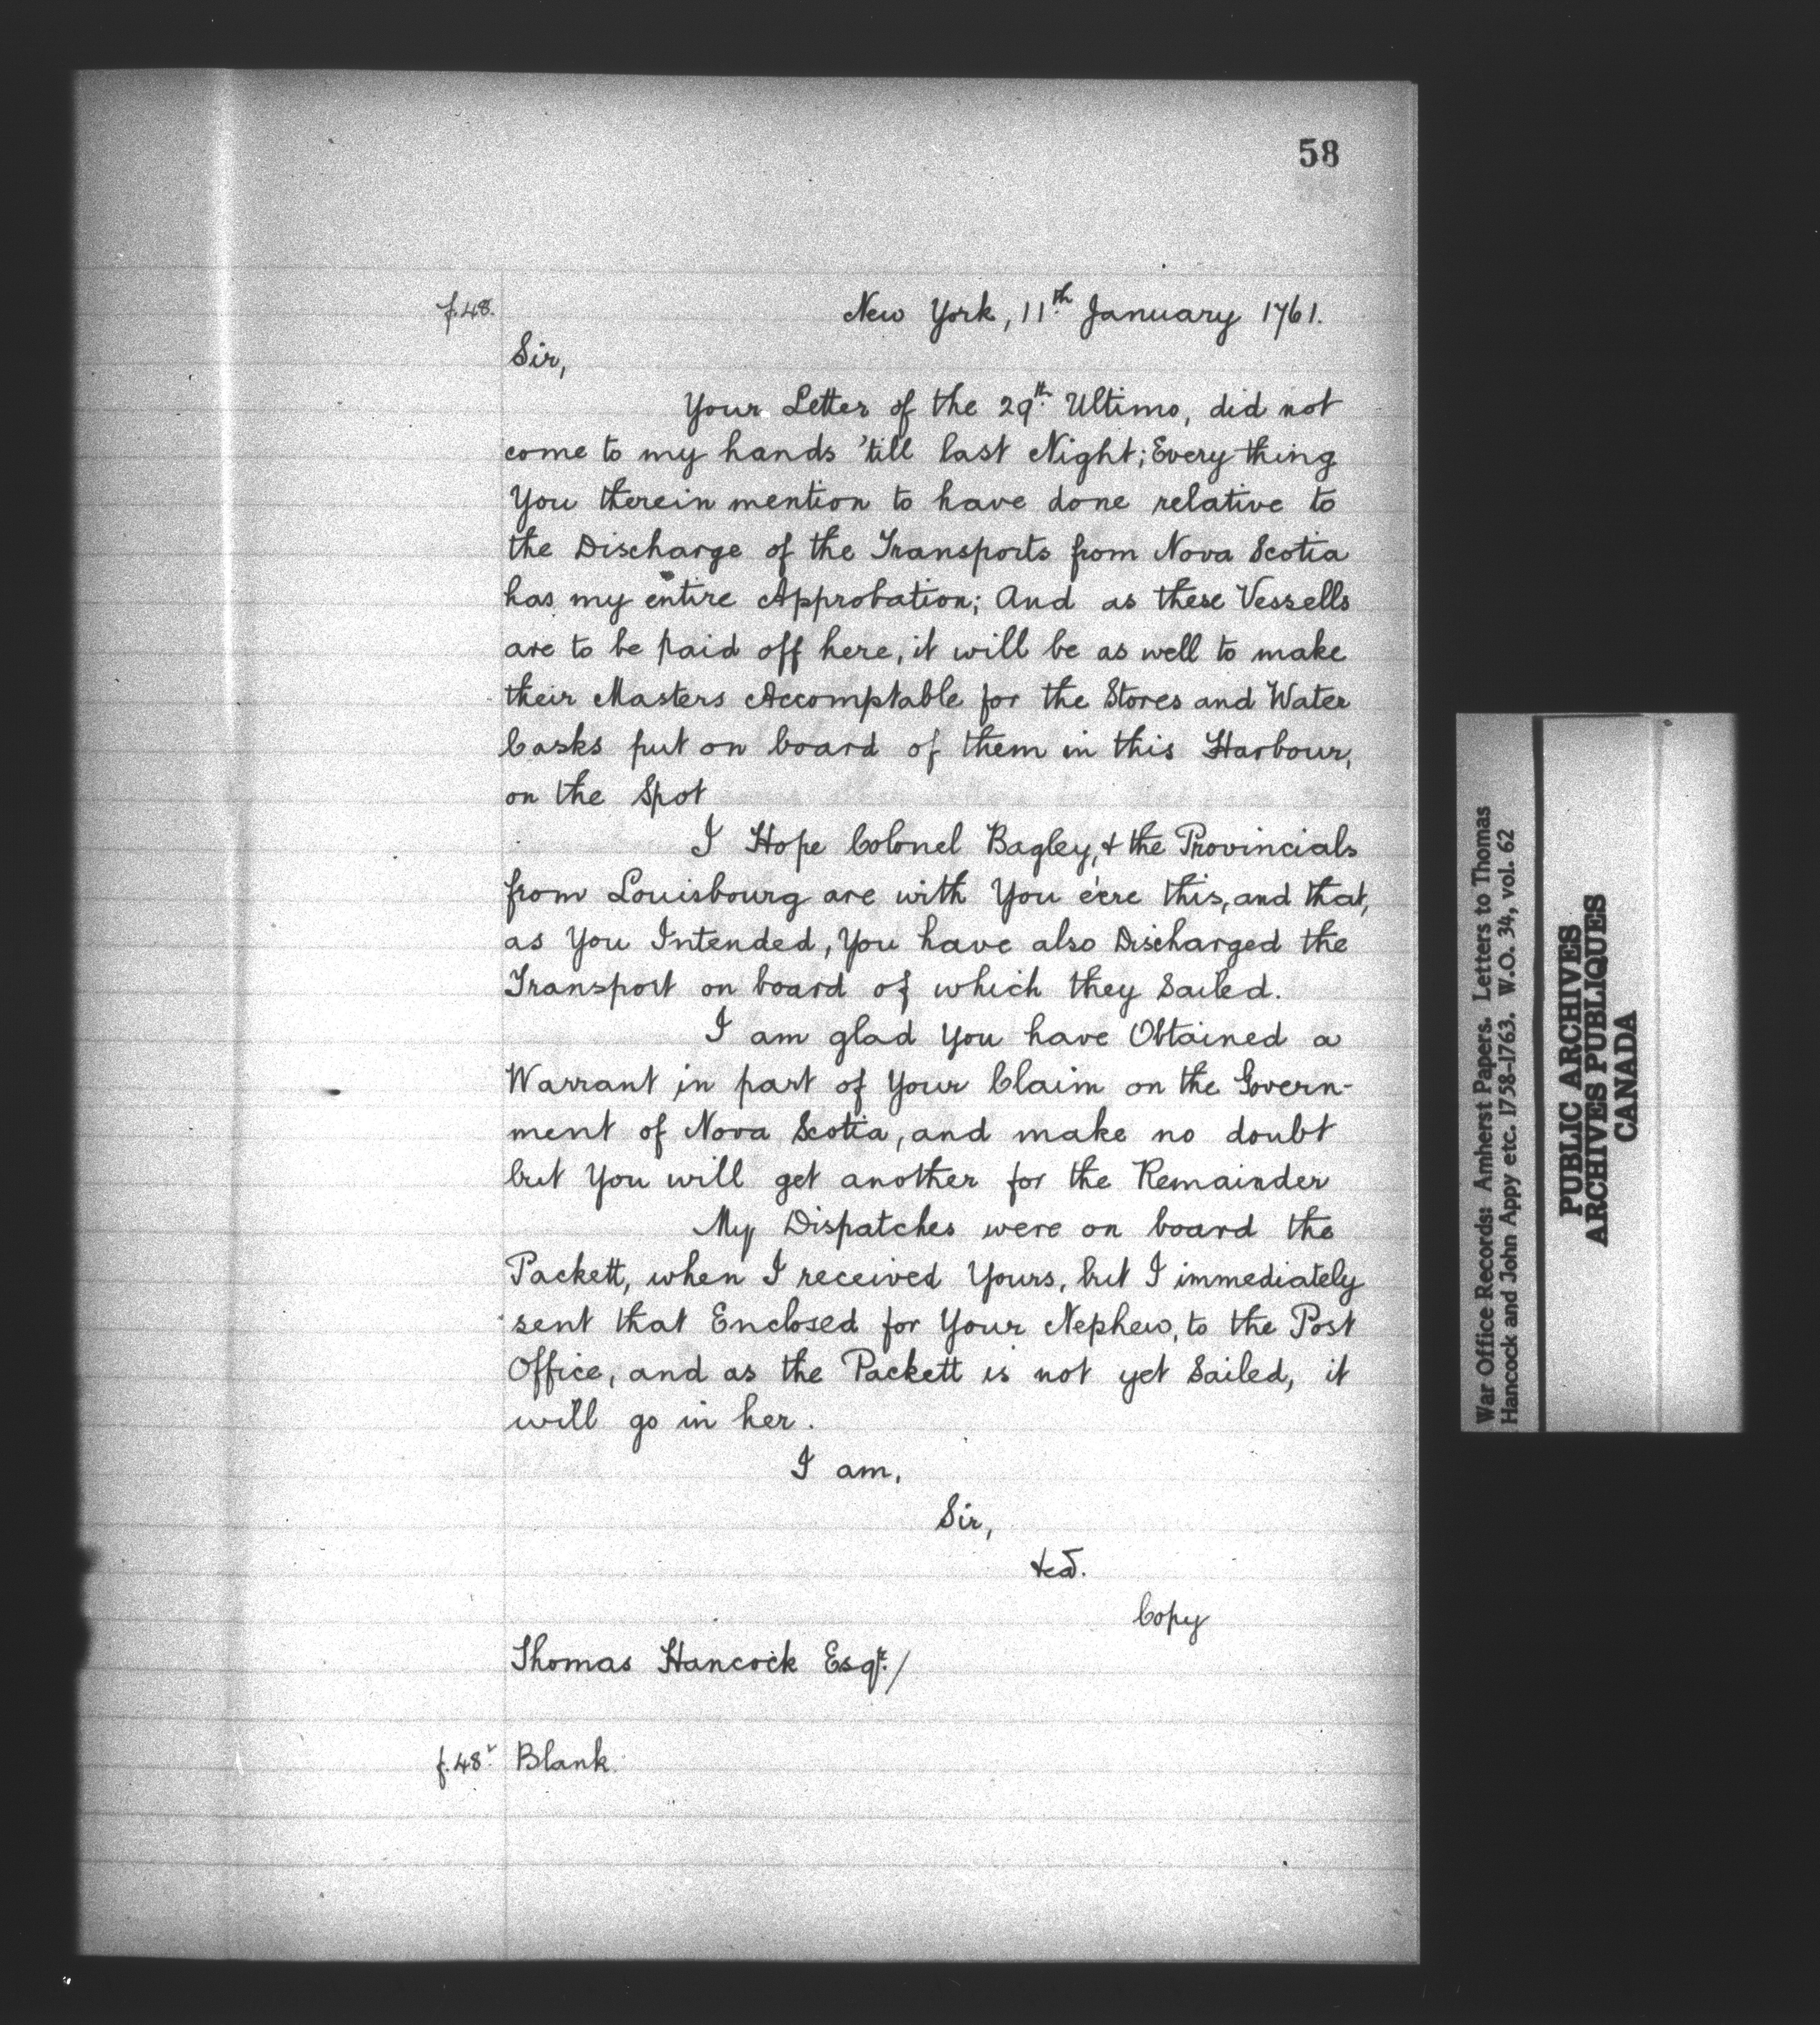 58
f.48. New York, 11th January 1761.
Sir,
Your Letter of the 29th Ultimo, did not
come to my hands 'till last Night; Every thing
You therein mention to have done relative to
the Discharge of the Transports from Nova Scotia
has my entire Approbation; And as these Vessells
are to be paid off here, it will be as well to make
their Masters Accomptable for the Stores and Water
Casks put on board of them in this Harbour,
on the Spot
I Hope Colonel Bagley, & the Provincials
from Louisbourg are with You e'ere this, and that,
as You Intended, You have also Discharged the
Transport on board of which they Sailed.
I am glad You have Obtained a
Warrant in part of Your Claim on the Govern-
ment of Nova Scotia, and make no doubt
but You will get another for the Remainder
My Dispatches were on board the
Packett, when I received Yours, but I immediately
sent that Enclosed for Your Nephew, to the Post
Office, and as the Packett is not yet Sailed, it
will go in her.
I am,
Sir,
&ca.
Copy
Thomas Hancock Esqr./
f.48v. Blank.
War Office Records: Amherst Papers. Letters to Thomas
Hancock and John Appy etc. 1758-1763. W.O. 34, vol. 62
PUBLIC ARCHIVES
ARCHIVES PUBLIQUES
CANADA